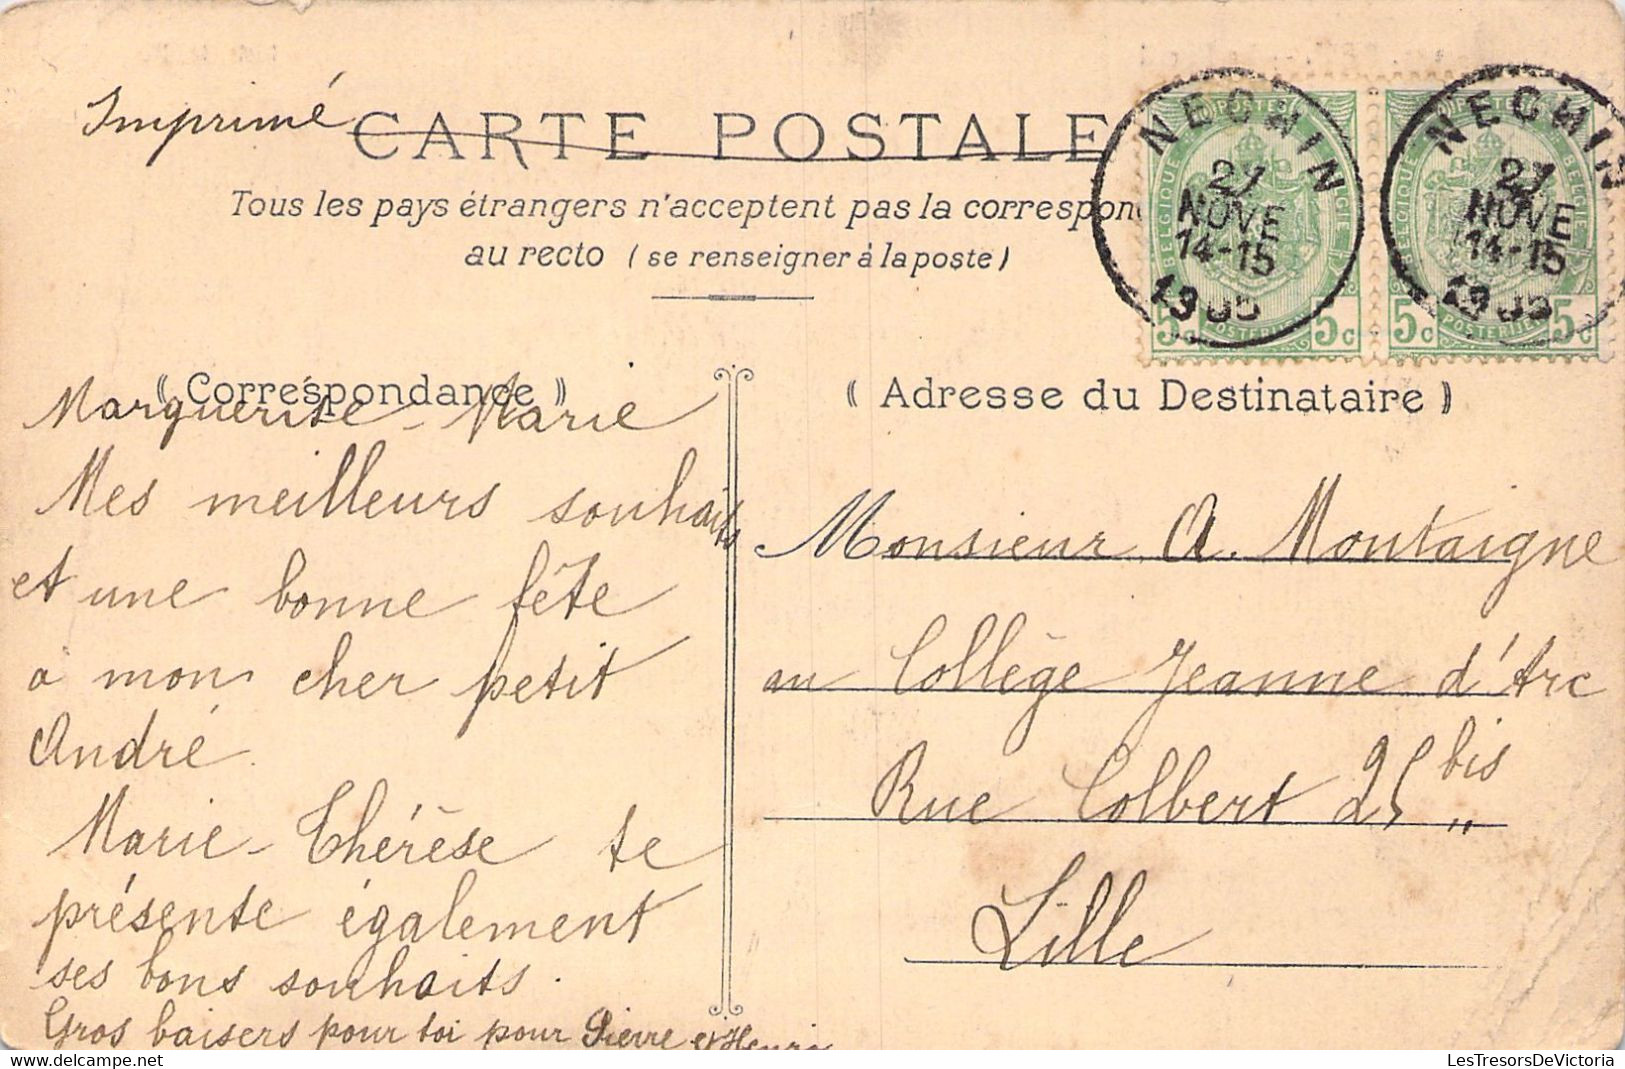 Imprimé
CARTE POSTALE
Tous les pays étrangers n'acceptent pas la correspon
au recto (se renseigner à la poste)
NECHIN
27
NOVE
14-15
POSTES
BELGIQUE
BELGIE
5c POSTERIJEN 5c
NECHIN
27
NOVE
14-15
POSTES
BELGIQUE
BELGIE
5c POSTERIJEN 5c
« Correspondance »
Marguerite - Marie
Mes meilleurs souhaits
et une bonne fête
à mon cher petit
André.
Marie-Thérèse te
présente également
ses bons souhaits.
Gros baisers pour toi pour Pierre et Henri
« Adresse du Destinataire »
Monsieur A. Montaigne
au Collège Jeanne d'Arc
Rue Colbert 25 bis
Lille
LesTresorsDeVictoria